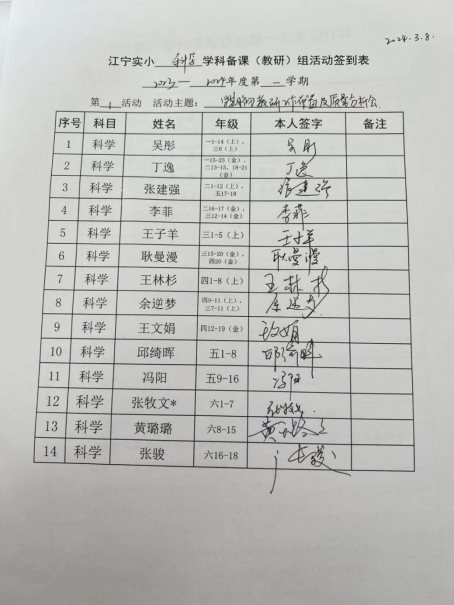 2024.3.8.
江宁实小 科学 学科备课（教研）组活动签到表
2023—2024年度第二学期
第 1 活动 活动主题：
序号 科目 姓名 年级 本人签字 备注
1 科学 吴彤 一1-14（上）、三6（上） 吴彤
2 科学 丁逸 一15-23（金）、二13-15、18-21（金） 丁逸
3 科学 张建强 二1-12（上）、五17-18 张建强
4 科学 李菲 二16-17（金）、三12-14（金） 李菲
5 科学 王子羊 三1-5（上） 王子羊
6 科学 耿曼漫 三15-20（金）、四20（金） 耿曼漫
7 科学 王林杉 四1-8（上） 王林杉
8 科学 余逆梦 四9-11（上）、三7-11（上） 余逆梦
9 科学 王文娟 四12-19（金） 王文娟
10 科学 邱绮晖 五1-8 邱绮晖
11 科学 冯阳 五9-16 冯阳
12 科学 张牧文* 六1-7 张牧文
13 科学 黄璐璐 六8-15 黄璐璐
14 科学 张骏 六16-18 张骏